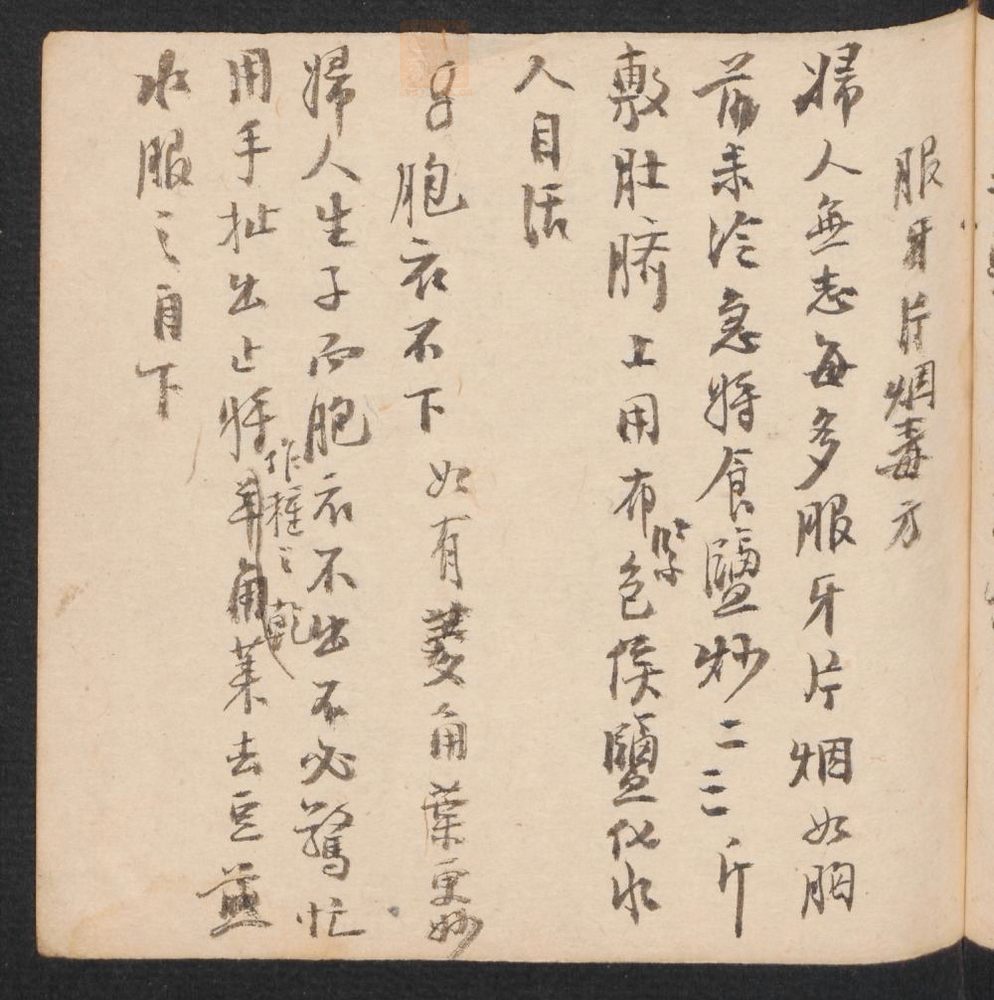 服牙片烟毒方
婦人無志每多服牙片烟如胸
前未冷急將食鹽炒二三斤
敷肚臍上用布包緊候鹽化水
人自活
胞衣不下 如有菱角葉更妙
婦人生子而胞衣不出不必驚忙
用手扯出止將羊角葉去豆煎
作種之乾
水服之自下